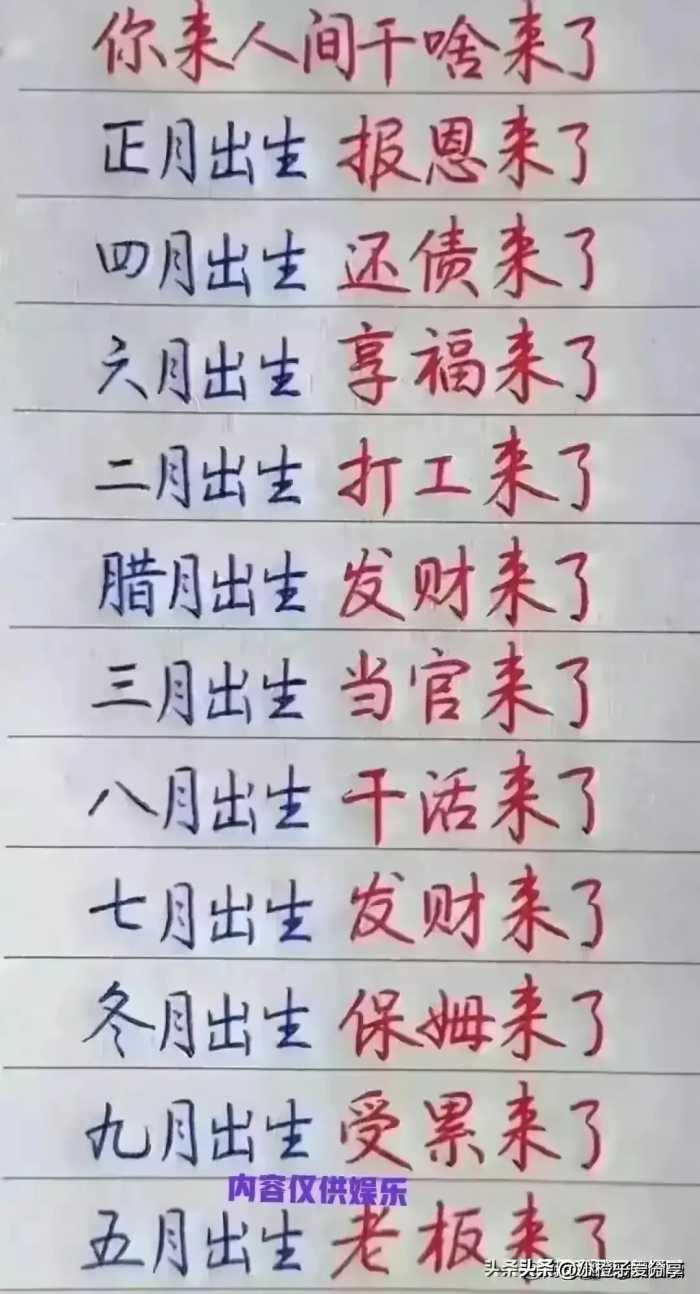 你来人间干啥来了
正月出生 报恩来了
四月出生 还债来了
六月出生 享福来了
二月出生 打工来了
腊月出生 发财来了
三月出生 当官来了
八月出生 干活来了
七月出生 发财来了
冬月出生 保姆来了
九月出生 受累来了
内容仅供娱乐
五月出生 老板来了
头条 @小橙子爱分享